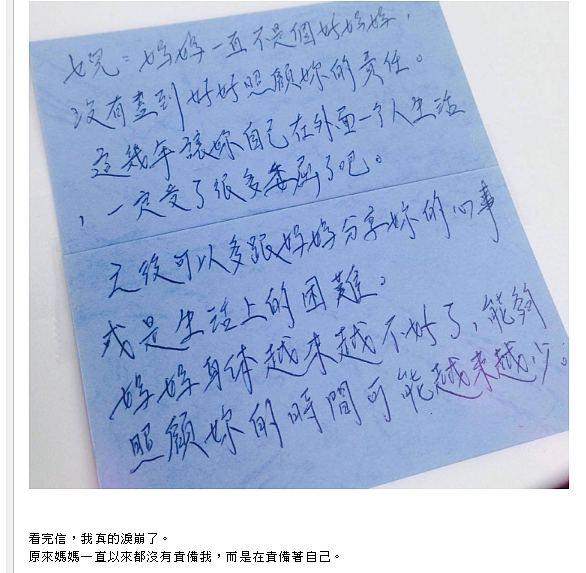 女兒：媽媽一直不是個好媽媽，
沒有盡到好好照顧妳的責任。
這幾年讓妳自己在外面一个人生活
，一定受了很多委屈了吧。
之後可以多跟媽媽分享妳的心事
或是生活上的困難。
媽媽身体越來越不好了，能夠
照顧妳的時間可能越來越少。
看完信，我真的淚崩了。
原來媽媽一直以來都沒有責備我，而是在責備著自己。